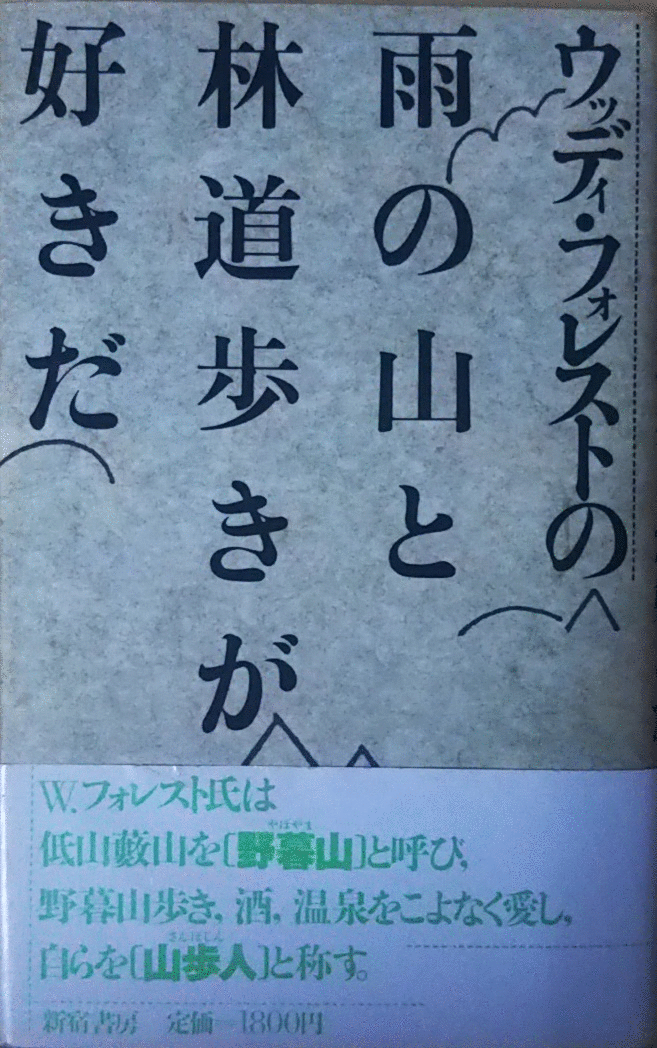 ウッディ・フォレストの
雨の山と
林道歩きが
好きだ
W.フォレスト氏は
やぼやま
低山藪山を〔野暮山〕と呼び,
野暮山歩き, 酒, 温泉をこよなく愛し,
さんぽじん
自らを〔山歩人〕と称す。
新宿書房 定価=1800円